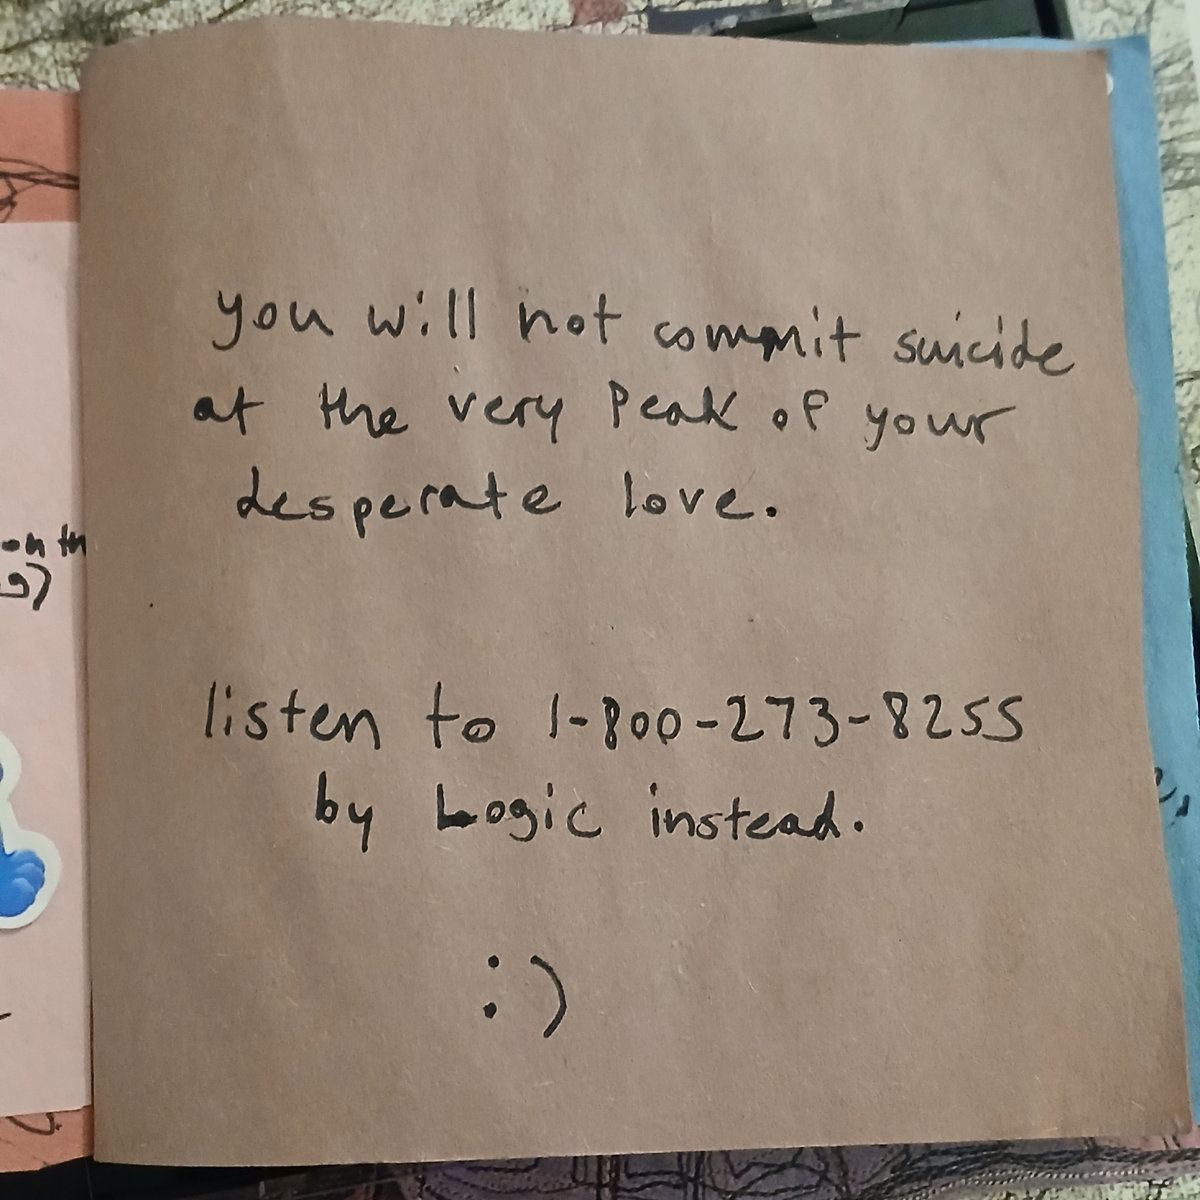 you will not commit suicide
at the very peak of your
desperate love.
listen to 1-800-273-8255
by Logic instead.
:)